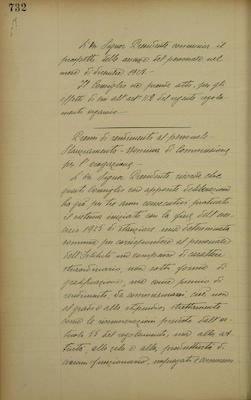 732
L'On. Signor Presidente comunica il
prospetto delle assenze del personale nel
mese di dicembre 1928.-
Il Consiglio ne prende atto, per gli
effetti di cui all'art. 112 del vigente regola-
mento organico.-
Premi di rendimento al personale-
Stanziamento - Nomina di Commissione
per l'erogazione.-
L'On. Signor Presidente ricorda che
questo Consiglio con apposite deliberazioni
ha già per tre anni consecutivi praticato
il sistema iniziato con la fine dell'eser-
cizio 1925 di stanziare una determinata
somma per corrispondere al personale
dell'Istituto un compenso di carattere
straordinario, non sotto forma di
gratificazione ma come premio di
rendimento, da commisurarsi cioè non
al grado e allo stipendio, strettamente
come le rimunerazioni previste dall'ar-
ticolo 55 del regolamento, ma alla at-
tività, allo zelo e alla produttività di
ciascun funzionario, impiegato e commesso